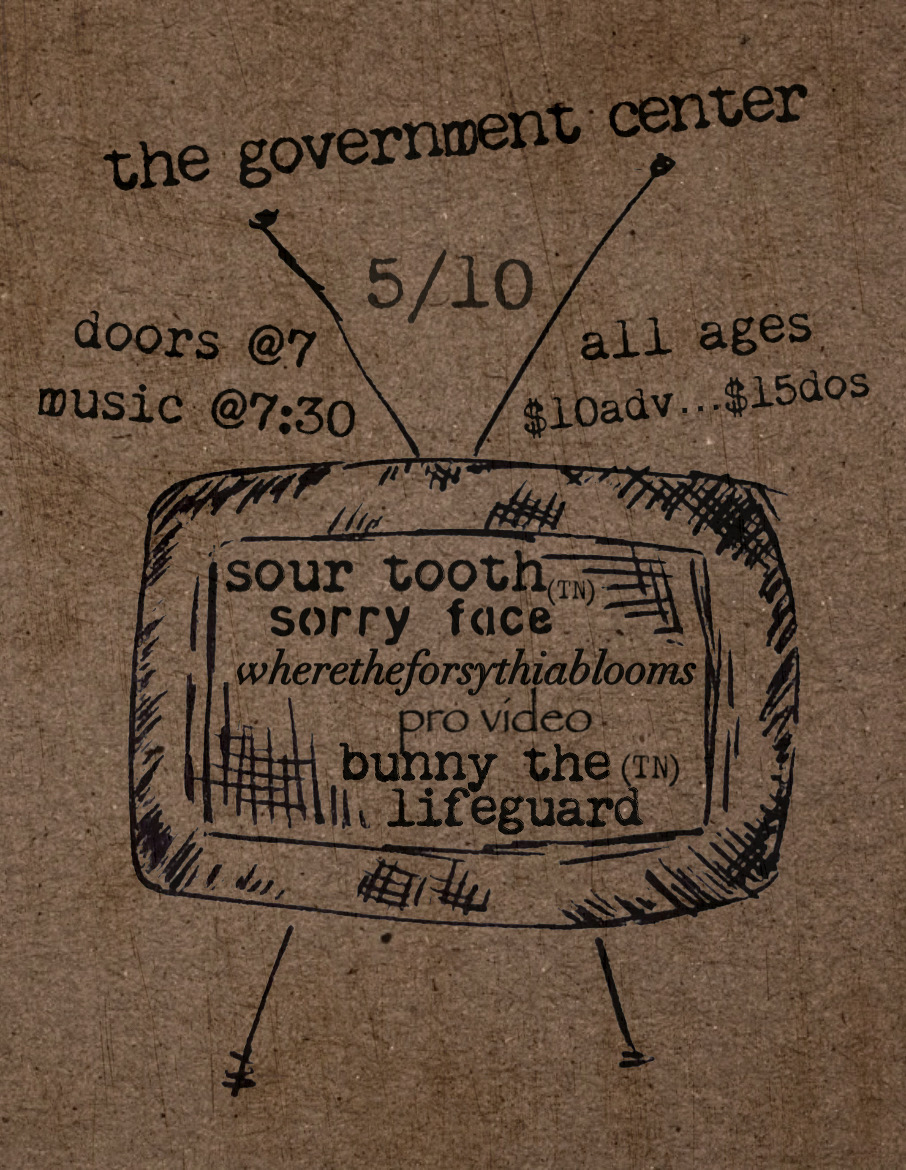 the government center
5/10
doors @7
music @7:30
all ages
$10adv...$15dos
sour tooth (TN)
sorry face
wheretheforsythiablooms
pro video
bunny the (TN)
lifeguard